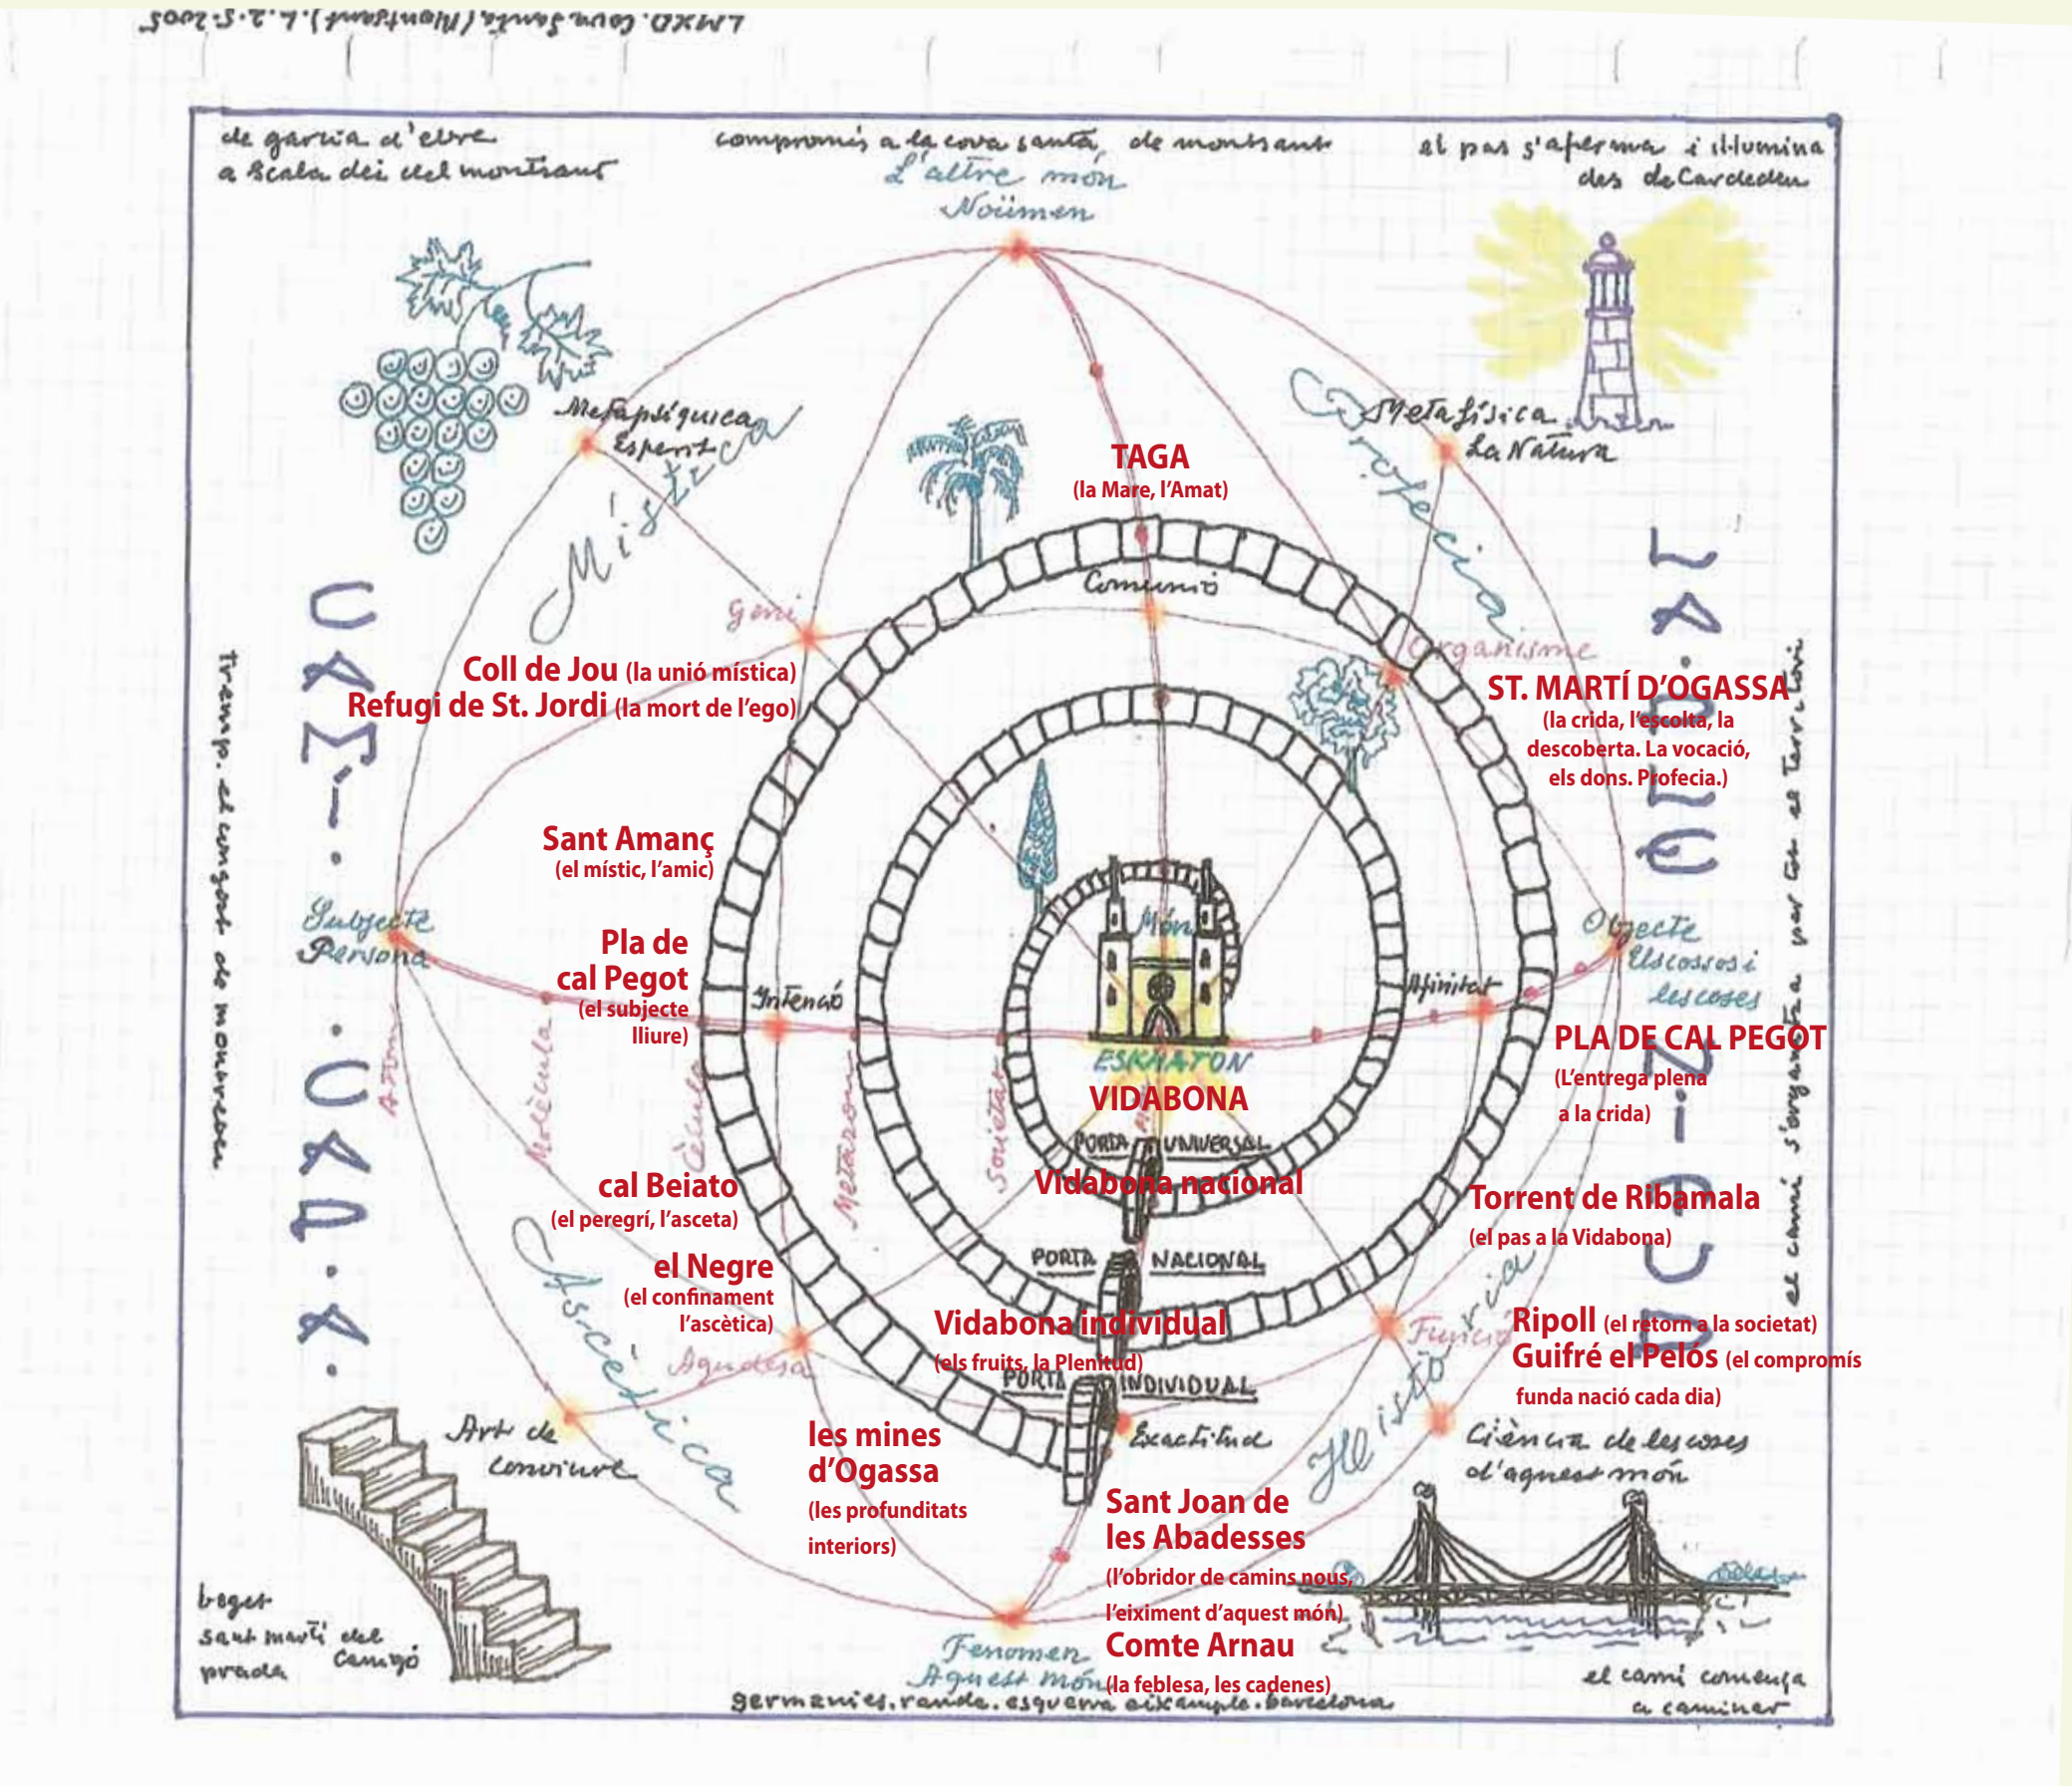 LMXD. Cova Santa (Montsant). L. 2-5-2005
de garcia d'ebre
a scala dei del montsant
compromís a la cova santa, de montsant
el pas s'aferma i il·lumina
des de Cardedeu
L'altre món
Noümen
Metapsíquica
Esperit
Mística
Metafísica
La Natura
Profecia
TAGA
(la Mare, l'Amat)
Comunió
Geni
Organisme
Coll de Jou (la unió mística)
Refugi de St. Jordi (la mort de l'ego)
ST. MARTÍ D'OGASSA
(la crida, l'escolta, la
descoberta. La vocació,
els dons. Profecia.)
CAMÍ · CAP · A ·
tremp. el congost de montrebei
el camí s'organitza per tot el territori
Sant Amanç
(el místic, l'amic)
Subjecte
Persona
Pla de
cal Pegot
(el subjecte
lliure)
Intenció
Món
Afinitat
Objecte
Els cossos i
les coses
ESKHATON
VIDABONA
PLA DE CAL PEGOT
(L'entrega plena
a la crida)
Àtom
Molècula
Cèl·lula
Metazou
Societat
PORTA UNIVERSAL
Vidabona nacional
cal Beiato
(el peregrí, l'asceta)
Torrent de Ribamala
(el pas a la Vidabona)
PORTA NACIONAL
el Negre
(el confinament
l'ascètica)
Vidabona individual
(els fruits, la Plenitud)
Agudesa
Ascètica
Funció
Història
Ripoll (el retorn a la societat)
Guifré el Pelós (el compromís
funda nació cada dia)
PORTA INDIVIDUAL
Exactitud
Art de
conviure
Ciència de les coses
d'aquest món
les mines
d'Ogassa
(les profunditats
interiors)
Sant Joan de
les Abadesses
(l'obridor de camins nous,
l'eiximent d'aquest món)
Comte Arnau
(la feblesa, les cadenes)
Fenomen
Aquest món
beget
sant martí del
Canigó
prada
germanies. randa. esquerra eixample. barcelona
el camí comença
a caminar